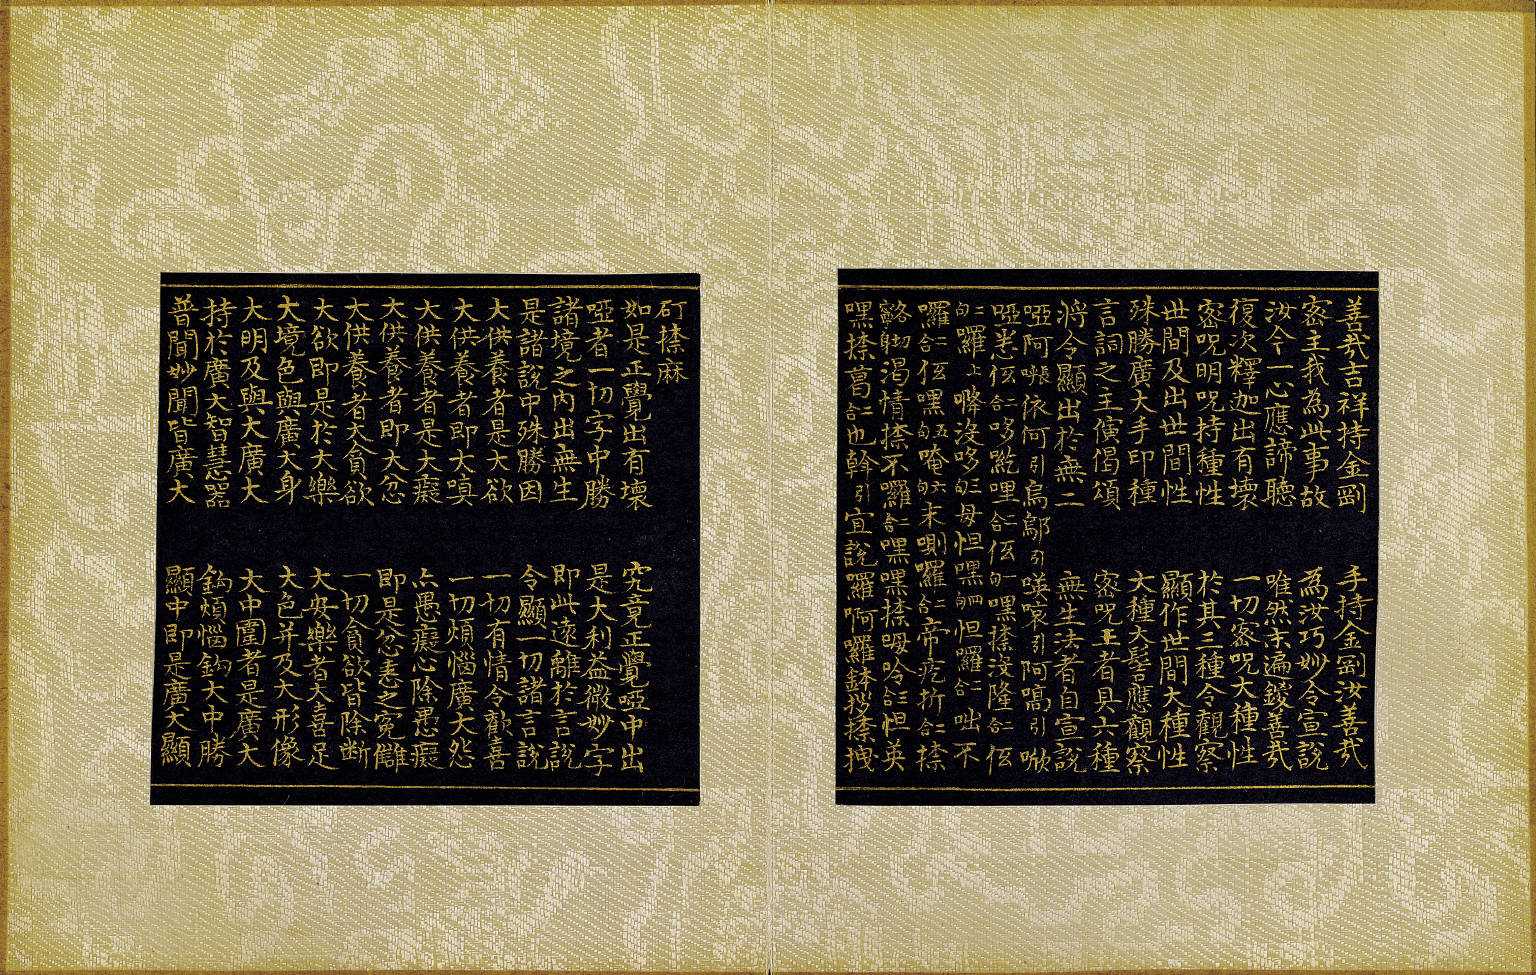 善哉吉祥持金剛 手持金剛汝善哉
密主我為此事故 為汝巧妙令宣說
汝今一心應諦聽 唯然末遍鑁善哉
復次釋迦出有壞 一切密呪大種性
密呪明呪持種性 於其三種令觀察
世間及出世間性 顯作世間大種性
殊勝廣大手印種 大種大髻應觀察
言詞之主演偈頌 密呪王者具六種
將令顯出於無二 無生法者自宣說
啞阿 依 引烏鄔引 哀引阿 引
啞 㑀 哆 哩 㑀 嘿捺沒隆 㑀
囉上 沒哆 毋怛嘿 怛囉 咄不
囉 㑀嘿 唵 末 囉 帝疙折 捺
渴情捺不囉 嘿嘿捺 吟 怛英
嘿捺葛 也幹引宣說囉啊囉鉢 捺拽
捺麻
如是正覺出有壞 究竟正覺啞中出
啞者一切字中勝 是大利益微妙字
諸境之內出無生 即此遠離於言說
是諸說中殊勝因 令顯一切諸言說
大供養者是大欲 一切有情令歡喜
大供養者即大嗔 一切煩惱廣大怨
大供養者是大癡 亦愚癡心除愚癡
大供養者即大忿 即是忿恚之冤讎
大供養者大貪欲 一切貪欲皆除斷
大欲即是於大樂 大安樂者大喜足
大境色與廣大身 大色并及大形像
大明及與大廣大 大中圍者是廣大
持於廣大智慧器 鈎煩惱鈎大中勝
普聞妙聞皆廣大 顯中即是廣大顯